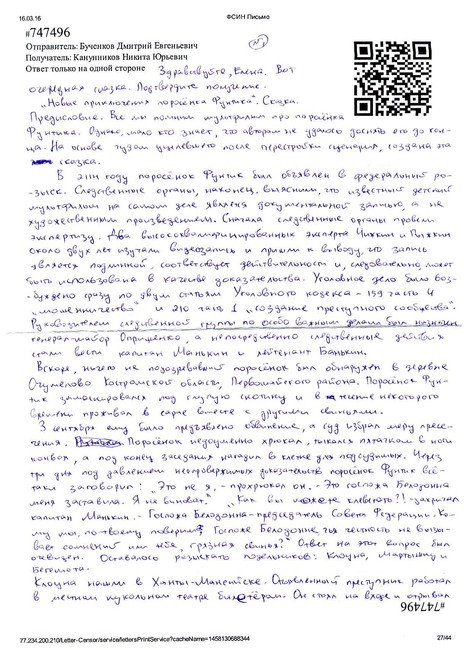 16.03.16 ФСИН Письмо
#747496
Отправитель: Бученков Дмитрий Евгеньевич
Получатель: Канунников Никита Юрьевич
Ответ только на одной стороне Здравствуйте, Елена. Вот
очередная сказка. Подтвердите получение.
"Новые приключения поросёнка Фунтика". Сказка.
Предисловие. Все мы помним мультфильм про поросёнка
Фунтика. Однако, мало кто знает, что авторам не удалось доснять его до кон-
ца. На основе чудом уцелевшего после перестройки сценария, создана эта
сказка.
В 2114 году поросёнок Фунтик был объявлен в федеральный ро-
зыск. Следственные органы, наконец, выяснили, что известный детский
мультфильм на самом деле является документальной записью, а не
художественным произведением. Сначала следственные органы провели
экспертизу. Два высококвалифицированных эксперта Чижкин и Пыжкин
около двух лет изучали видеозапись и пришли к выводу, что запись
является подлинной, соответствует действительности и, следовательно, может
быть использована в качестве доказательства. Уголовное дело было воз-
буждено сразу по двум статьям Уголовного кодекса - 159 часть 4
"мошенничество" и 210 часть 1 "создание преступного сообщества".
Руководителем следственной группы по особо важным делам был назначен
генерал-майор Оприщенко, а непосредственно следственные действия
стали вести капитан Манькин и лейтенант Банькин.
Вскоре, ничего не подозревавший поросёнок был обнаружен в деревне
Огумелово Костромской области, Первомайского района. Поросёнок Фун-
тик замаскировался под глупую скотину и в течение некоторого
времени проживал в сарае вместе с другими свиньями.
3 сентября ему было предъявлено обвинение, а суд избрал меру пресе-
чения. Поросёнок недоумённо хрюкал, тыкался пятачком в ноги
конвоя, а под конец заседания нагадил в клетке для подсудимых. Через
три дня под давлением неопровержимых доказательств поросёнок Фунтик всё-
таки заговорил: - Это не я, - прохрюкал он. - Это госпожа Беладонна
меня заставила. Я не виноват." "Как вы можете клеветать?!! - закричал
капитан Манькин. - Госпожа Беладонна - председатель Совета Федерации. Ко-
му мы, по-твоему поверим? Госпоже Беладонне, чья честность не вызы-
вает сомнений или тебе, грязная свинья?" Ответ на этот вопрос был
очевиден. Оставалось разыскать подельников: Клоуна, Мартышку и
Бегемота.
Клоуна нашли в Ханты-Мансийске. Отъявленный преступник работал
в местном кукольном театре билетёром. Он стоял на входе и отрывал
#747496
77.234.200.210/Letter-Censor/service/lettersPrintService?cacheName=1458130688344 27/44